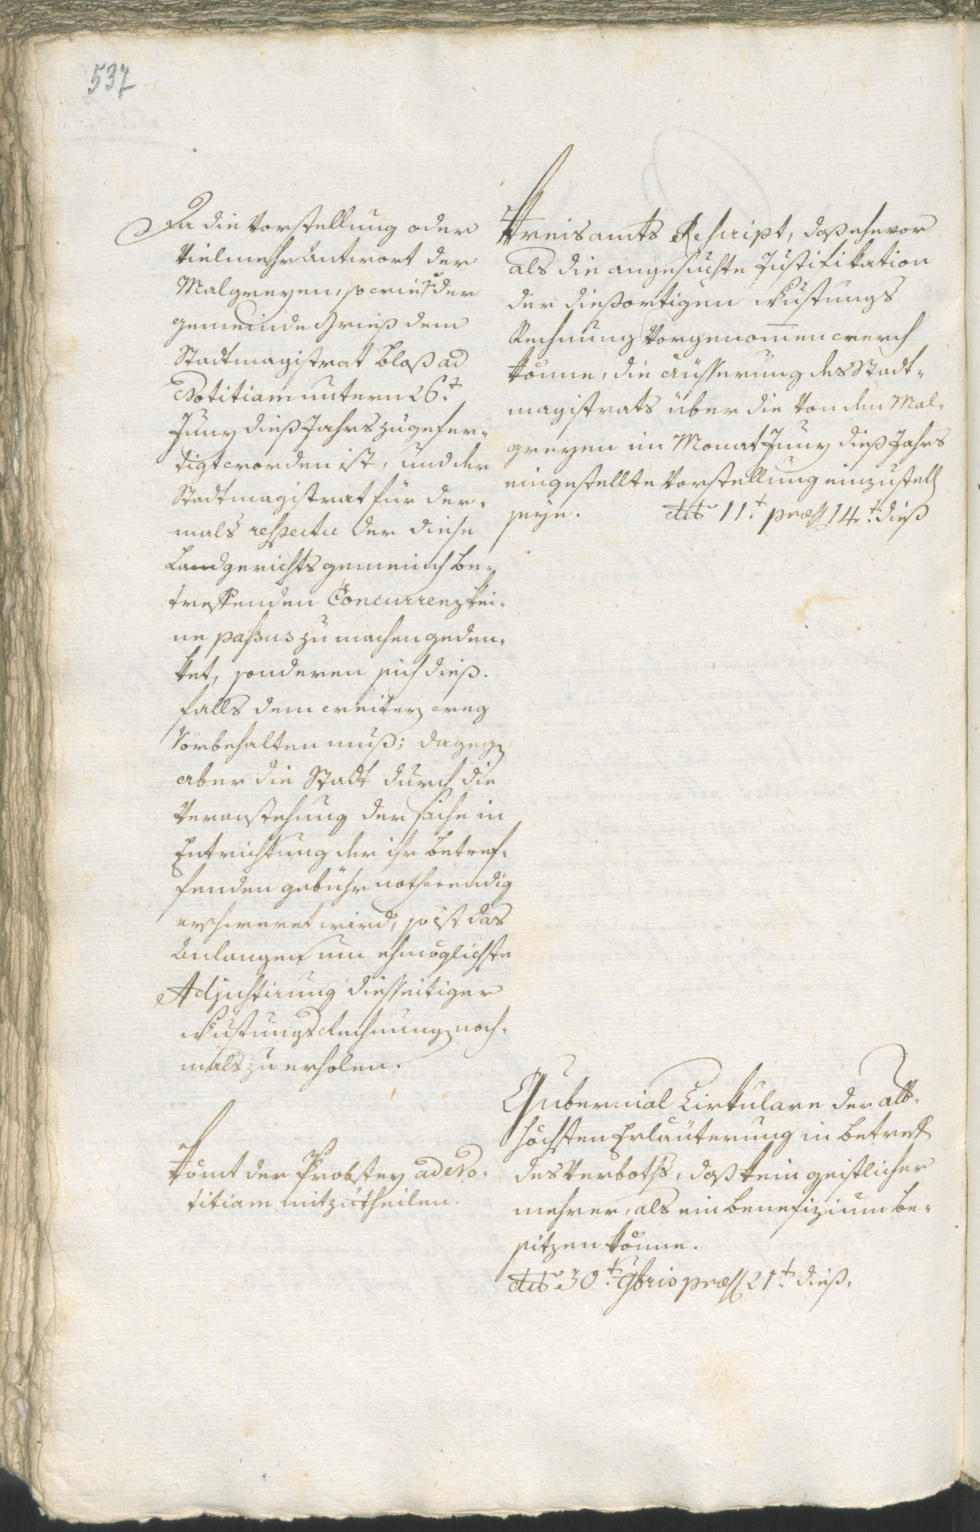 537
Da die Vorstellung oder
vielmehr Antwort der
Malgreyen, sowie der
gemeinde Grieß dem
Stadtmagistrat bloß ad
Notitiam untern 26t.
Juny dieß Jahrs zugefer-
tigt worden ist, und der
Stadtmagistrat für der-
mals respectu der diese
Landgerichts gemeind be-
treffenden Concurrenz kei-
ne passus zu machen geden-
ket, sonderen sich dieß-
falls dem weiteren weeg
Vorbehalten muß; dagegen
aber die Stadt durch die
Veranstehung der sache in
Entrichtung der ihr betref-
fenden gebühr nothwendig
erschweret wird; so ist das
Anlangen um ehmöglichste
Adjustirung diesseitiger
Wustungs Rechnungen noch-
mals zu erholen.
Kömt der Probstey ad No-
titiam mitzutheilen.
Kreisamts Rescript, daß ehevor
als die angesuchte Justifikation
der dießortigen Wustungs
Rechnung vorgenommen werden
könne, die äusserung des Stadt-
magistrats über die von den Mal-
greyen im Monat Juny dieß Jahrs
eingestellte Vorstellung einzustellen
seye. dto 11t. præs. 14t. dieß
Gubernial Cirkulare der aller-
höchsten Erläuterung in betreff
des Verboths, daß kein geistlicher
mehrer, als ein benefizium be-
sitzen könne.
dto 30t. 7bris præs. 21t. dieß.